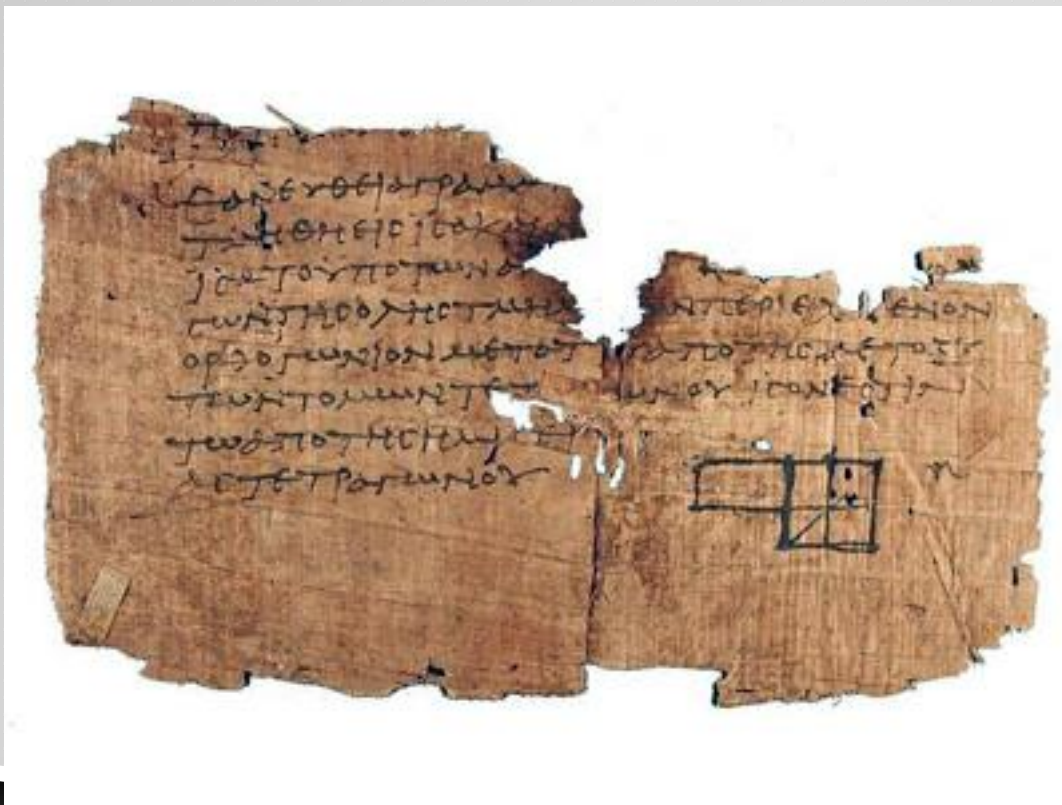 ΕΑΝ ΕΥΘΕΙΑ ΓΡΑΜΜ
ΤΜΗΘΗ ΕΙϹ ΙϹΑ Κ
ΙϹΑ ΤΟ ΥΠΟ ΤΩΝ Α
ϹΩΝ ΤΗϹ ΟΛΗϹ ΤΜΗ ΩΝ ΠΕΡΙΕΧΟΜΕΝΟΝ
ΟΡΘΟΓΩΝΙΟΝ ΜΕΤΑ ΤΟΥ ΑΠΟ ΤΗϹ ΜΕΤΟΞΥ
ΤΩΝ ΤΟΜΩΝ ΤΕΤ ΩΝΟΥ ΙϹΟΝ ΕϹΤΙΝ
ΤΩ ΑΠΟ ΤΗϹ ΗΜΙ
ΑϹ ΤΕΤΡΑΓΩΝΟΥ